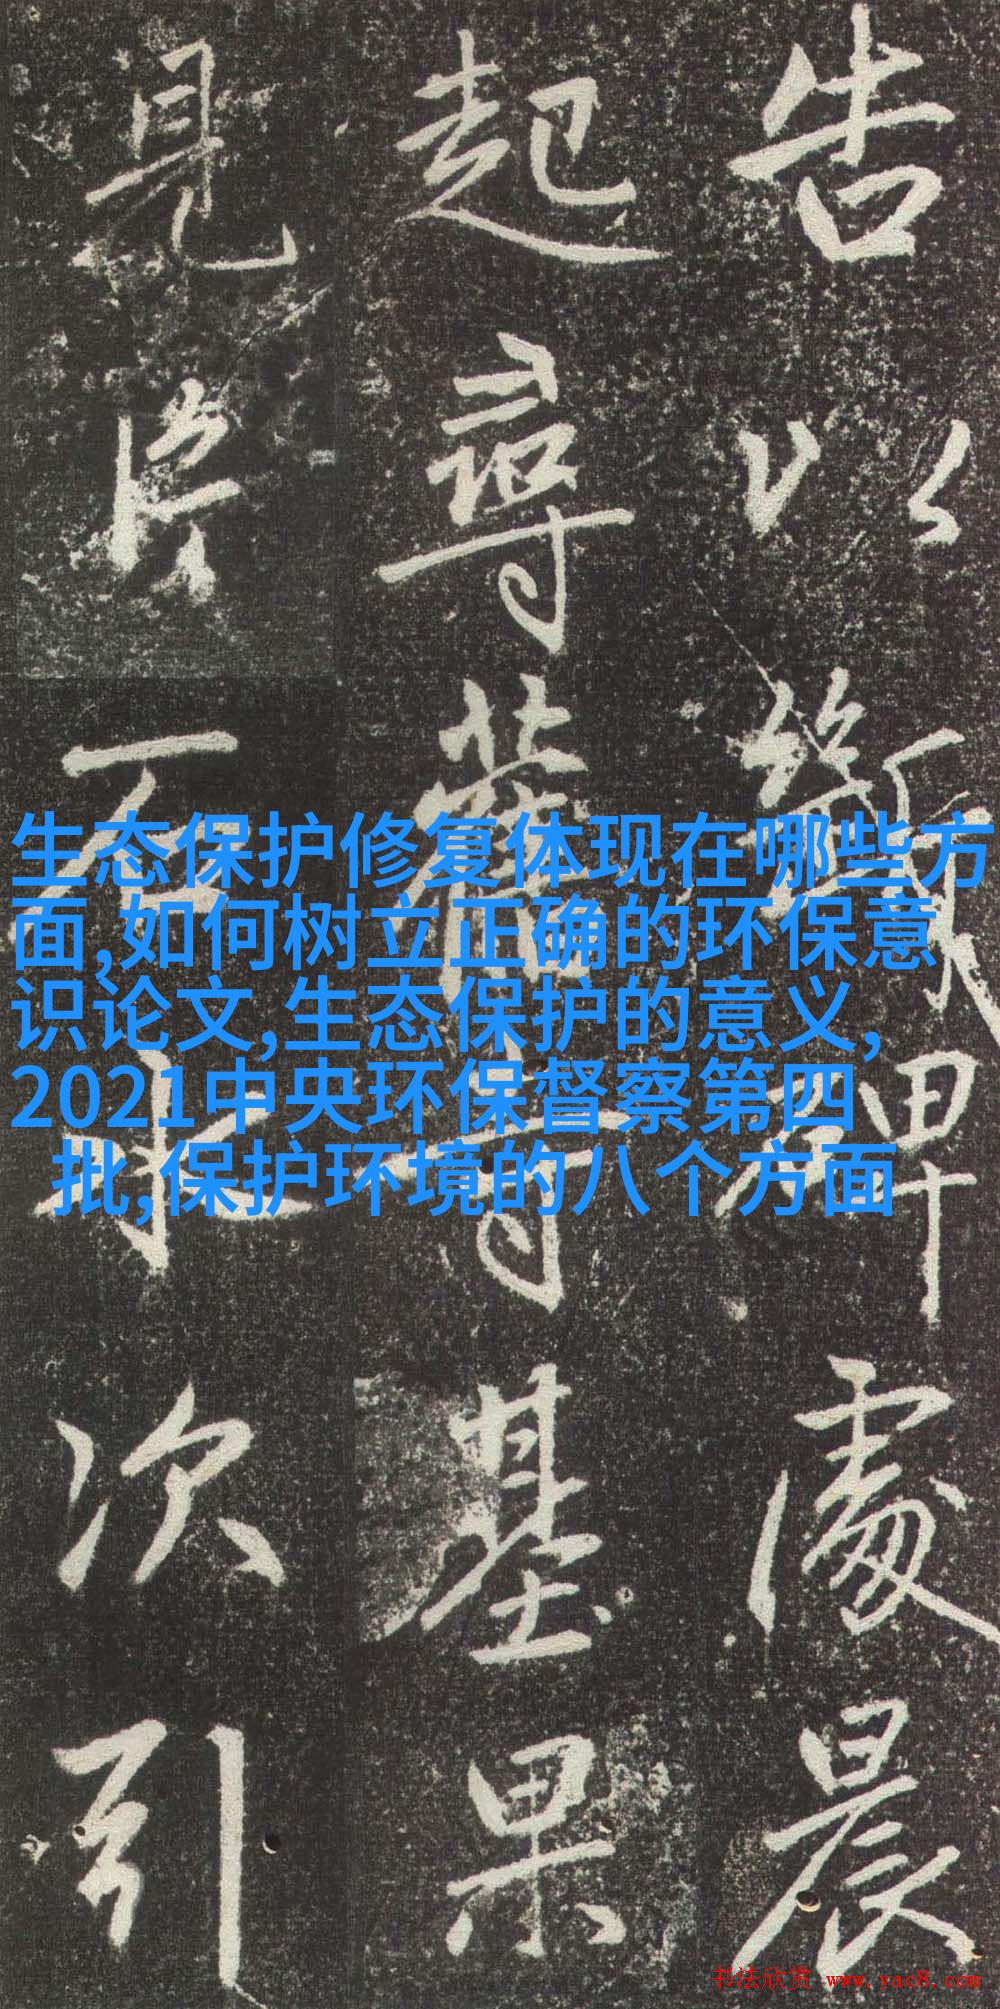 告以徵碑處晨
起尋舊寺基果
見片石永次引
生态保护修复体现在哪些方
面,如何树立正确的环保意
识论文,生态保护的意义,
2021中央环保督察第四
批,保护环境的八个方面
书法欣赏 www.yac8.com